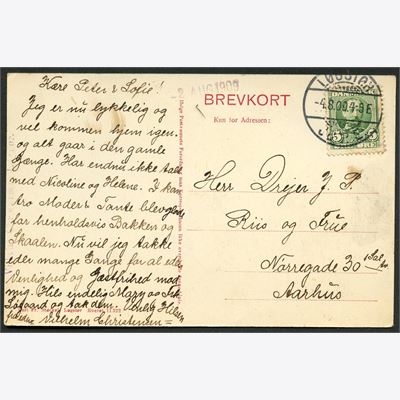 Kære Peter & Sofie!
Jeg er nu lykkelig og
vel kommen hjem igen.
og alt gaar i den gamle
Gænge. Har endnu ikke talt
med Nicoline og Helene. I kan
tro Moder & Tante blev glade
for henholdsvis Bakken og
Skaalen. Nu vil jeg takke
eder mange Gange for al eders
Venlighed og Gæstfrihed mod
mig. Hils endelig Mary og
og tak dem. Venlig Hilsen
Vilhelm Christensen
AUG 1909
BREVKORT
Kun for Adressen:
LØGSTØR
-4.8.09. 4-5E
DANMARK
5 5
Herr Drejer J. P.
Riis og Frue
Nørregade 30 Sal
Aarhus